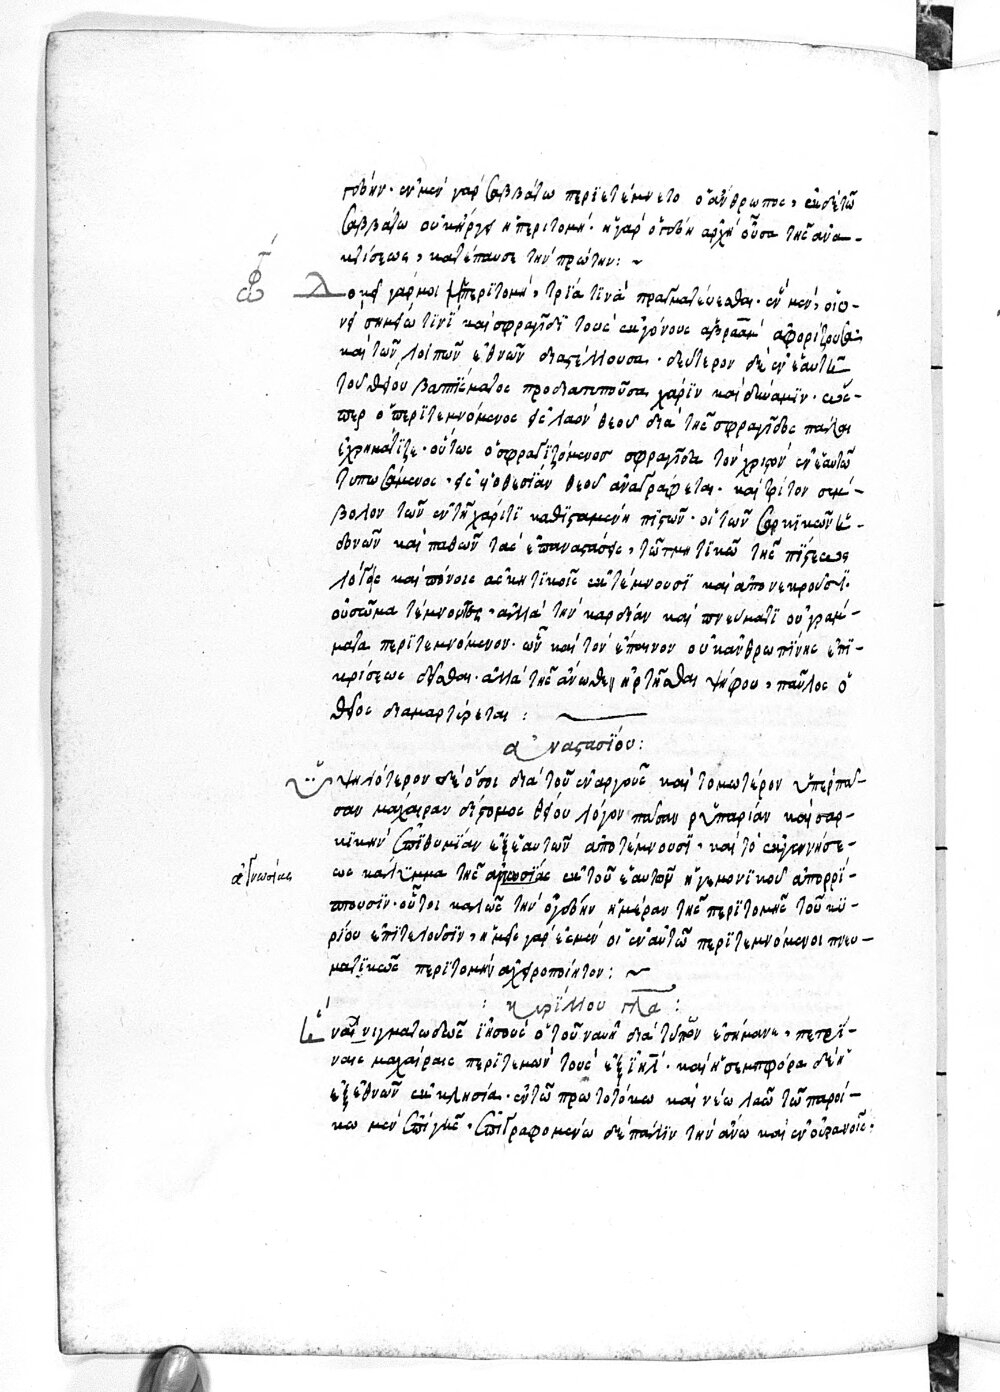 γδόην· ἐν μὲν γὰρ σαββάτω περϊετέμνετο ὁ ἄνθρωπος, ἐν δὲ τῶ
σαββάτω οὐκ ἤργει ἡ περιτομή· ἡ γὰρ ὀγδόη ἀρχὴ οὖσα τῆς ἀνα-
κτίσεως, κατέπαυσε τὴν πρώτην: ~
Δοκεῖ γάρ μοι ἡ περϊτομὴ, τρία τϊνὰ πραγματεύεσθαι· ἓν μὲν, οἷο-
νεὶ σημείω τϊνῒ καὶ σφραγῖδϊ τοὺς ἐκγόνους ἀβραὰμ ἀφορίζουσα
καὶ τῶν λοιπῶν ἐθνῶν διαστέλλουσα· δεύτερον δὲ ἐν ἑαυτῆ
τοῦ θείου βαπτίσματος προδιατυποῦσα χάρϊν καὶ δύναμϊν· ὥς-
περ ὁ περϊτεμνόμενος εἰς λαὸν θεοῦ διὰ τῆς σφραγῖδος πάλαι
ἐχρημάτϊζε· οὕτως ὁ σφραγϊζόμενος σφραγῖδα τὸν χριστὸν ἐν ἑαυτῶ
τυπωσάμενος, εἰς υἱοθεσϊάν θεοῦ ἀναγράφεται· καὶ τρίτον σύμ-
βολον τῶν ἐν τῆ χάριτϊ καθϊσταμένη πϊστῶν· οἳ τῶν σαρκϊκῶν ἡ-
δονῶν καὶ παθῶν τὰς ἐπαναστάσεις, τῶ τμητϊκῶ τῆς πΐστεως
λόγω καὶ πόνοις ἀσκητϊκοῖς ἐκτέμνουσϊ καὶ ἀπονεκροῦσϊ·
οὐ σῶμα τέμνοντες· ἀλλὰ τὴν καρδίαν καὶ πνεύματϊ οὐ γράμ-
ματι περϊτεμνόμενοι· ὧν καὶ τὸν ἔπαινον οὐκ ἀνθρωπίνης ἐπϊ-
κρίσεως δεῖσθαι· ἀλλὰ τῆς ἄνωθεν ἠρτῆσθαι ψήφου, παῦλος ὁ
θεῖος διαμαρτύρεται :
ἀναστασΐου :
Ὑψηλότερον δὲ ὅσοι διὰ τοῦ ἐναργοῦς καὶ τομωτέρου ὑπὲρ πᾶ-
σαν μάχαιραν δίστομος θείου λόγου πᾶσαν ῥυπαρίαν καὶ σαρ-
κϊκὴν ἐπϊθυμΐαν ἐξ ἑαυτῶν ἀποτέμνουσϊ· καὶ τὸ ἐκ γεννήσε-
ως κάλυμμα τῆς ἀγνωσΐας ἐκ τοῦ ἑαυτῶν ἡγεμονϊκοῦ ἀπορρί-
πτουσϊν· οὗτοι καλῶς τὴν ὀγδόην ἡμέραν τῆς περϊτομῆς τοῦ κυ-
ρίου ἐπϊτελοῦσϊν, ἡμεῖς γάρ ἐσμὲν οἱ ἐν αὐτῶ περϊτεμνόμενοι πνευ-
ματϊκῶς περϊτομὴν ἀχειροποίητον: ~
ἀγνωσίας
: κυρΐλλου :
ναϊνιγματωδῶς ἰησοῦς ὁ τοῦ ναυῆ διὰ τύπον ἐσήμανε, πετρΐ-
ναις μαχαίραις περϊτεμὼν τοὺς ἐξ ἰηλ· καὶ ἡ συμπφόρα δὲ ἡ
ἐξ ἐθνῶν ἐκκλησία· ἐν τῶ πρωτοτόκω καὶ νέω λαῶ τῶ παροί-
κω μὲν ἐπὶ γῆς, ἐπϊγραφομένω δὲ πάλϊν τὴν ἄνω καὶ ἐν οὐρανοῖς·